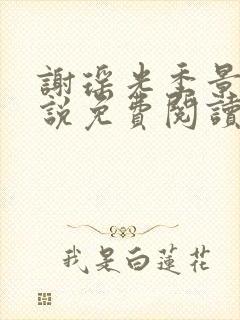 謝瑶光季景
說免費閱讀
我是白蓮花